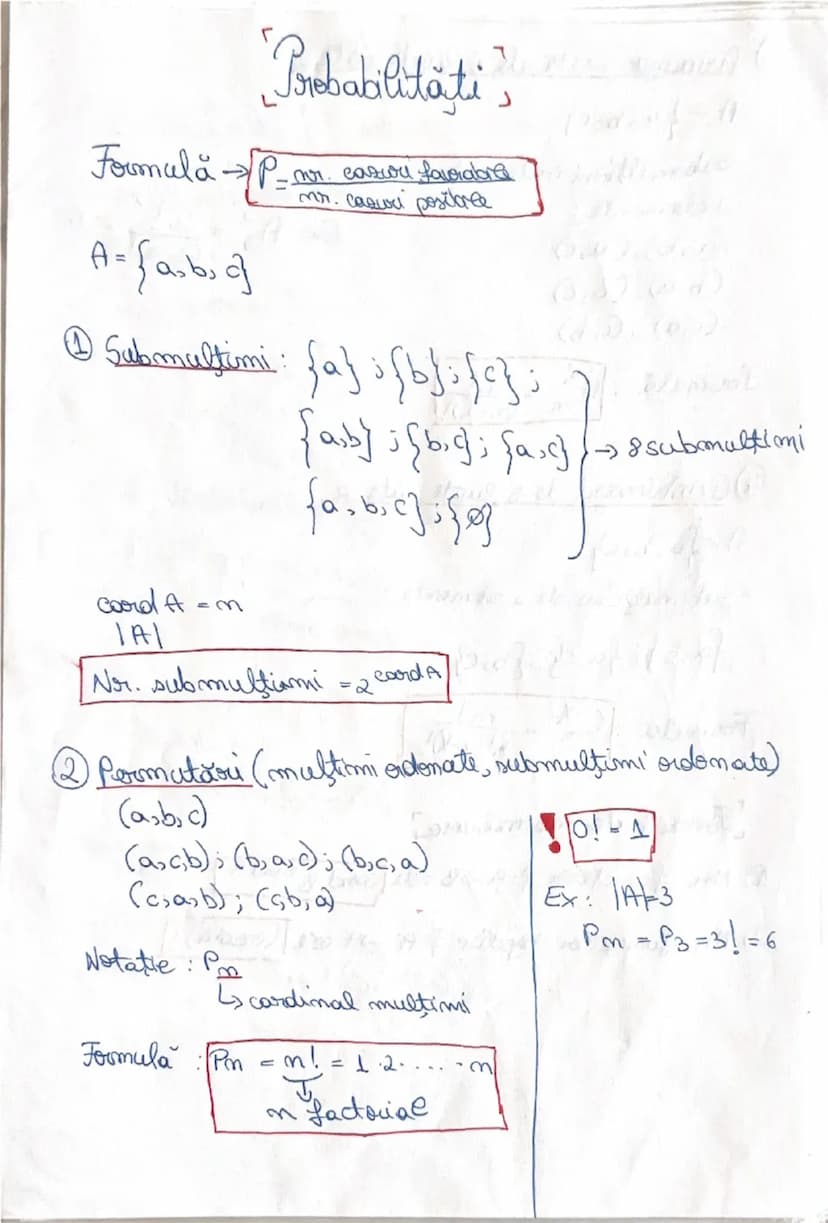 Probabilități
Formulă → P = nr. cazuri favorabile
nr. cazuri posibile
A = {a, b, c}
① Submulțimi: {a} ; {b} ; {c} ;
{a,b} ; {b,c} ; {a,c} → 8 submulțimi
{a, b, c} ; {∅}
card A = n
|A|
Nr. submulțimi = 2^card A
② Permutări (mulțimi ordonate, submulțimi ordonate)
(a,b,c)
(a,c,b) ; (b,a,c) ; (b,c,a)
(c,a,b) ; (c,b,a)
Notație : Pn
↳ cardinal mulțimi
Formulă : Pn = n! = 1 · 2 · .... · n
↓
n factorial
! 0! = 1
Ex : |A|=3
Pn = P3 = 3! = 6